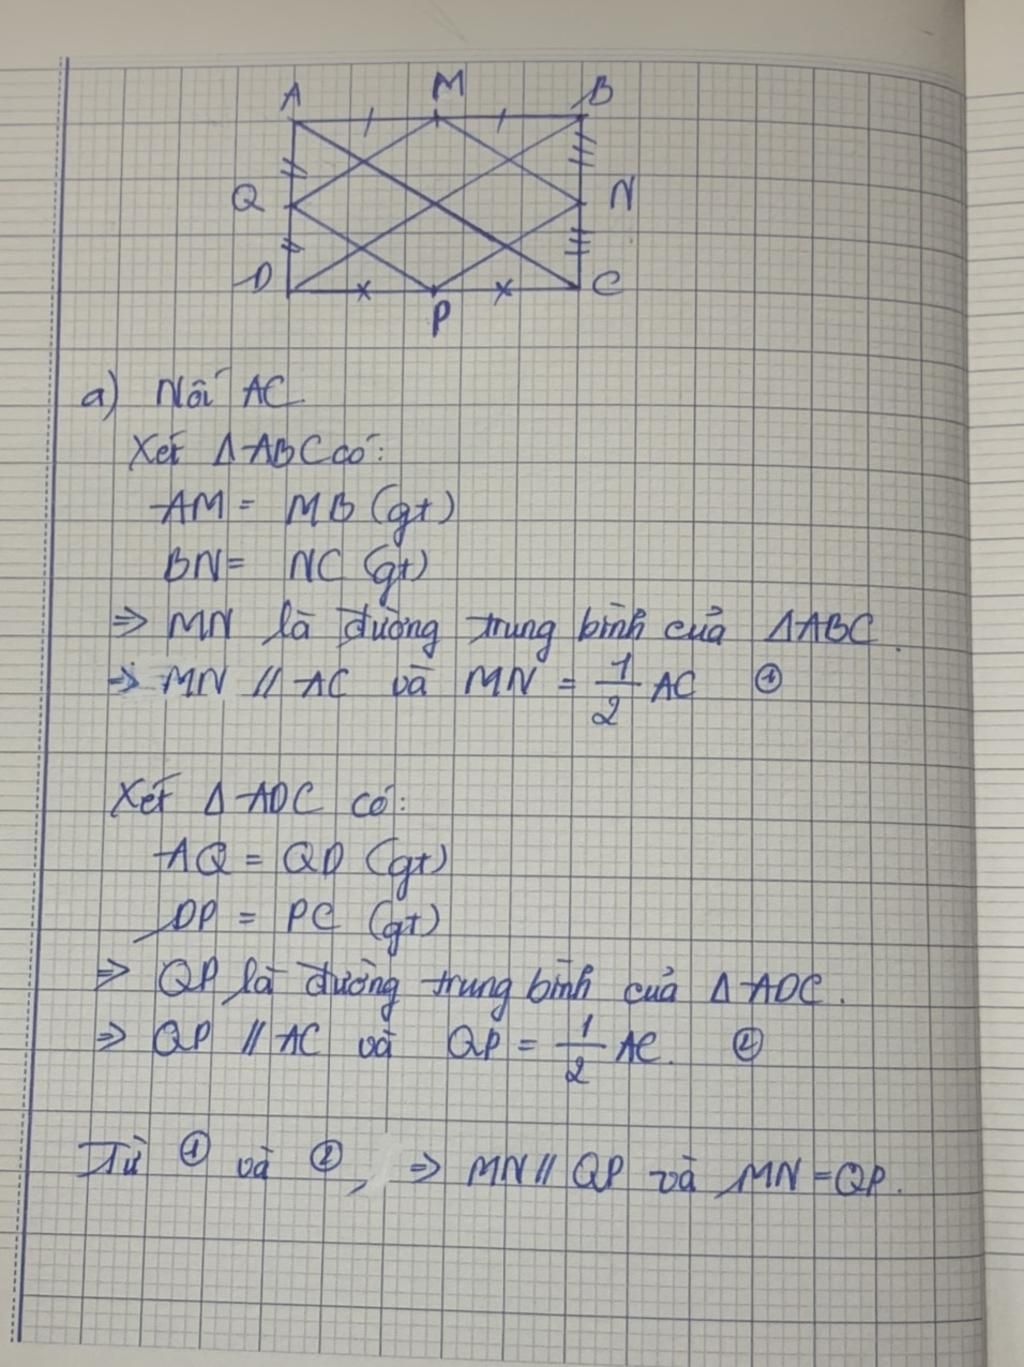 A M B
Q N
D P C
a) Nối AC
Xét Δ ABC có:
AM = MB (gt)
BN = NC (gt)
⇒ MN là đường trung bình của ΔABC.
⇒ MN // AC và MN = 1/2 AC ①
Xét Δ ADC có:
AQ = QD (gt)
DP = PC (gt)
⇒ QP là đường trung bình của Δ ADC.
⇒ QP // AC và QP = 1/2 AC. ②
Từ ① và ②, ⇒ MN // QP và MN = QP.